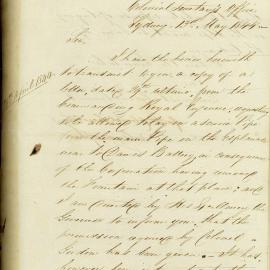 Colonial Secretary's Office
Sydney 13th May 1844
Sir,
I have the honor herewith
to transmit to you, a copy of a
letter, dated 9th ultimo, from the
Commanding Royal Engineer,
to in a service Pipe
from the main Pipe in the Esplanade
near to Dawes Battery, in consequence
of the Corporation having removed
the Fountain at that place; and
I am directed by His Excellency the
Governor to inform you, that the
permission required by Colonel
Gordon has been given. It has
9th April 1844